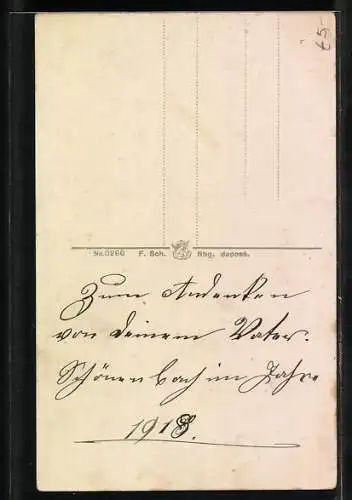 65.-
No. 0266 F. Sch. Nbg. deposé.
Zum Andenken
von deinem Vater.
Schönenbach im Jahre
1918.